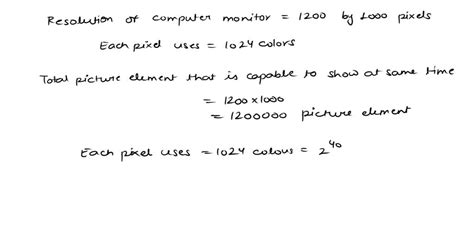 Resolution of computer monitor = 1200 by 1000 pixels
Each pixel uses = 1024 colors
Total picture element that is capable to show at same time
= 1200 x 1000
= 1200000 picture element
Each pixel uses = 1024 colous = 2^40